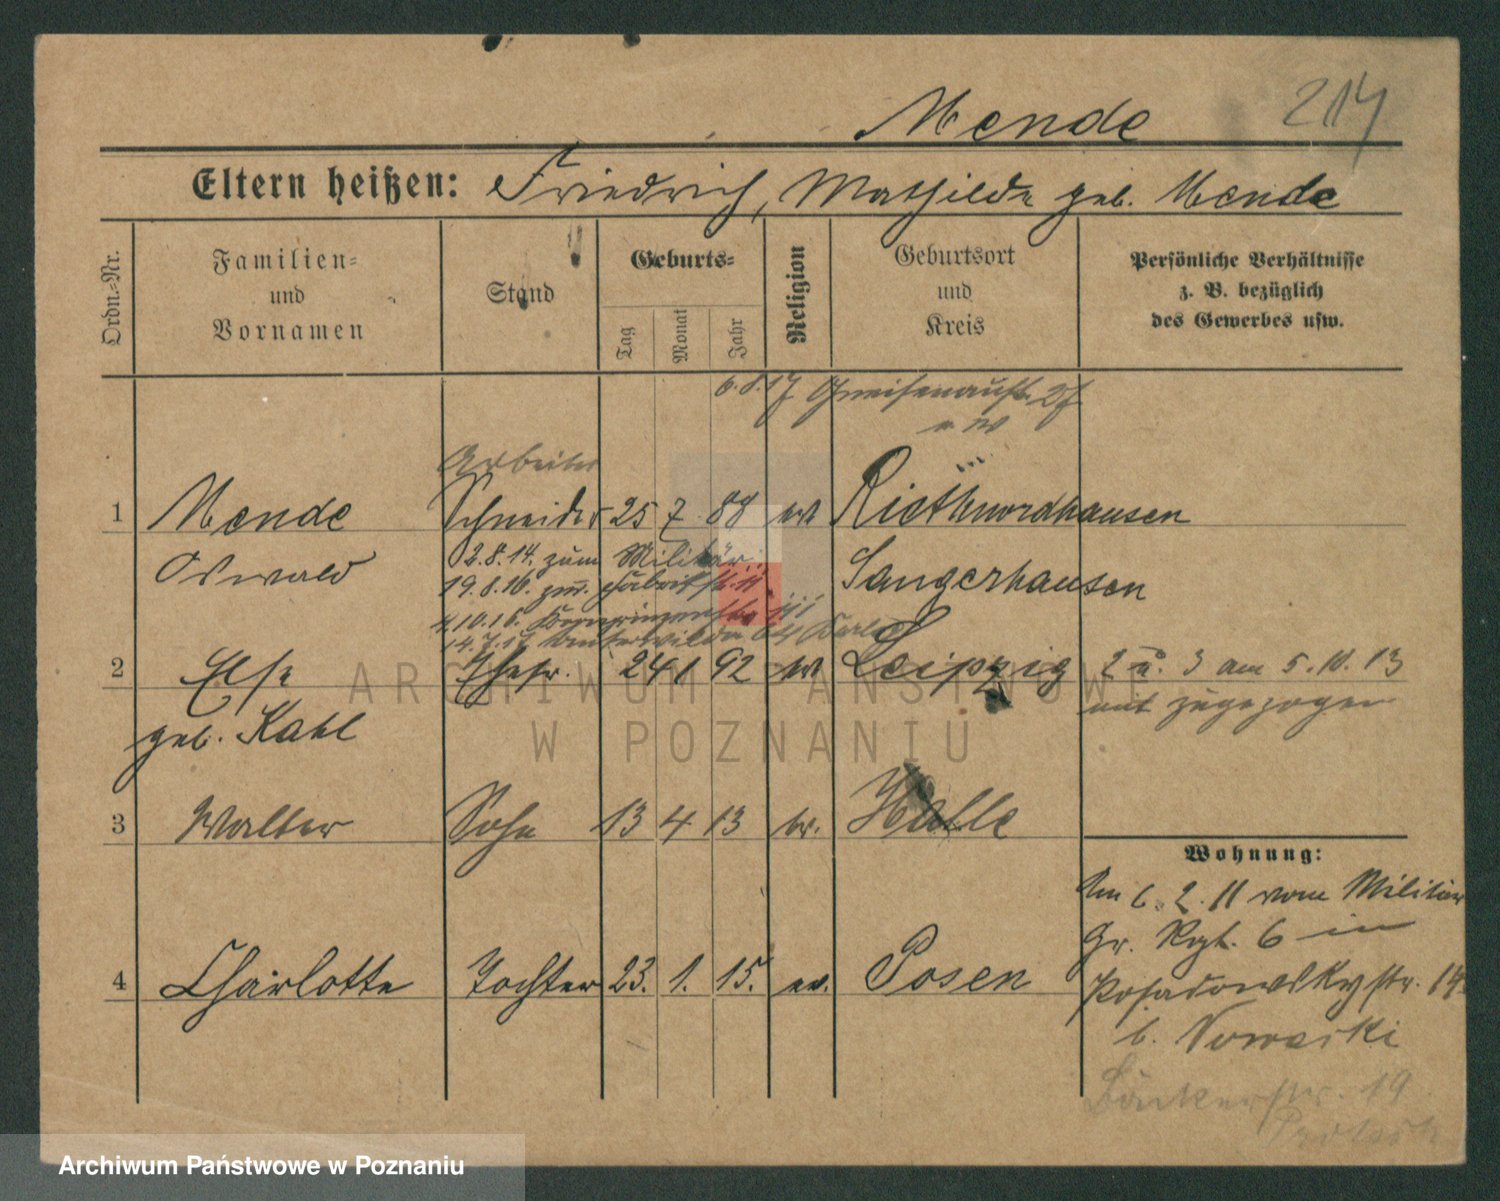 Mende
214
Eltern heißen: Friedrich, Mathilde geb. Mende
Ordn.-Nr.
Familien-
und
Vornamen
Stand
Geburts-
Tag
Monat
Jahr
Religion
Geburtsort
und
Kreis
Persönliche Verhältnisse
z. B. bezüglich
des Gewerbes usw.
6.8.17 Gneisenaustr. 27
Arbeiter
1 Mende Schneider 25 7 88 ev Riethnordhausen
Oswald
2.8.14. zum Militär
Sangerhausen
19.8.16. zur. Fabrikstr. 11
4.10.16. Kronprinzenstr.
14.7.17
2 Else Ehefr. 24 1 92 ev Leipzig 2 u. 3 am 5.10.13
geb. Kahl
mit zugezogen
3 Walter Sohn 13 4 13 ev. Halle
Wohnung:
Am 6.2.11 vom Militär
Gr. Rgt. 6 in
4 Charlotte Tochter 23. 1. 15. ev. Posen
Posadowskystr. 14
b. Nowaski
Bäckerstr. 19
ARCHIWUM PAŃSTWOWE
W POZNANIU
Archiwum Państwowe w Poznaniu